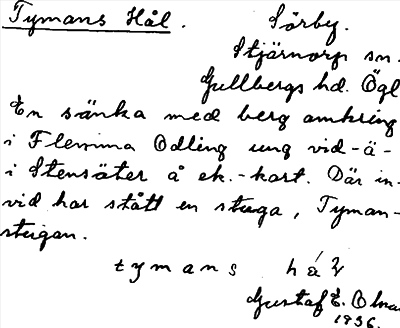 Tymans Hål. Sörby.
Stjärnorp sn.
Gullbergs hd. Ögl
En sänka med berg omkring
i Flemma Odling ung vid-ä-
i Stensäter å ek.-kart. Där in-
vid har stått en stuga, Tyman-
stugan.
tymans
Gustaf E.
1936.